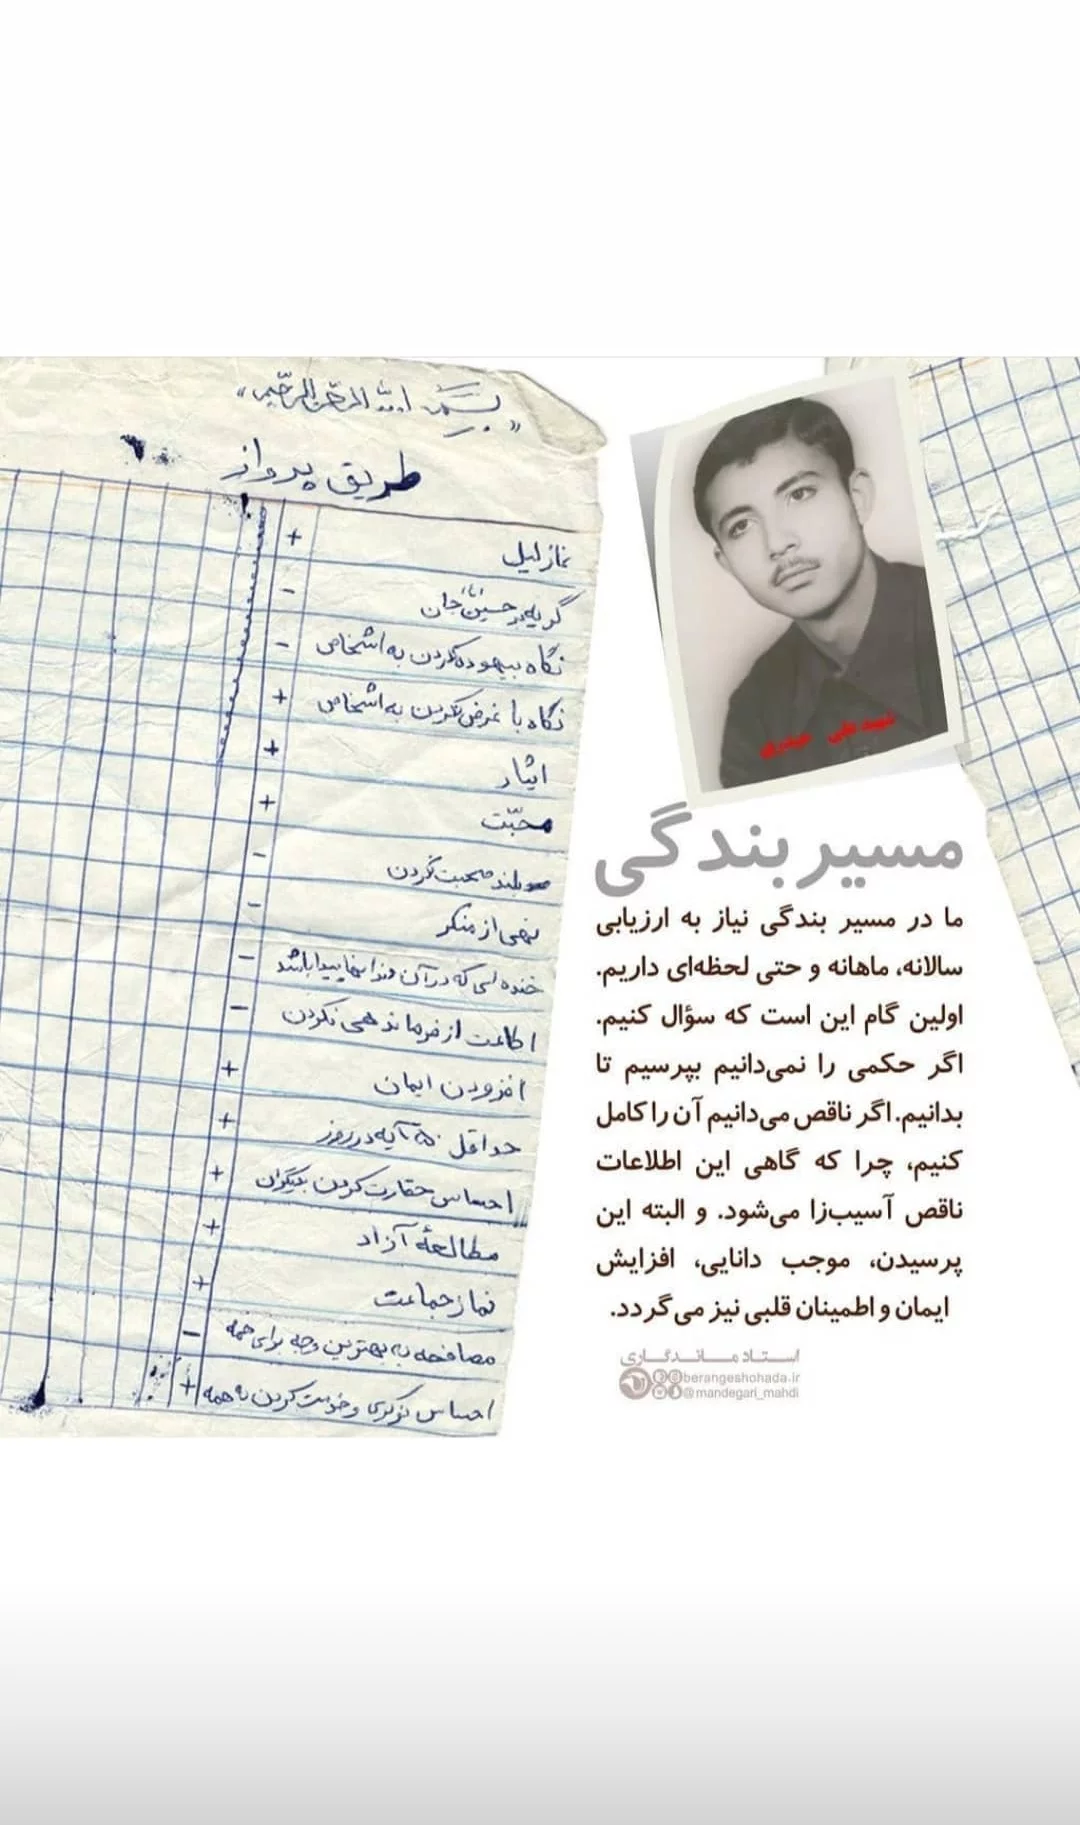 «بسم الله الرحمن الرحیم»
طریق پرواز
نماز لیل +
گریه بر حسین جان -
نگاه بیهوده کردن به اشخاص -
نگاه با غرض نکردن به اشخاص +
ایثار +
محبّت +
بلند صحبت کردن -
نهی از منکر -
خنده‌ای که در آن دندانها پیدا باشد -
اطاعت از فرماندهی نکردن -
افزودن ایمان +
حداقل ۵۰ آیه در روز +
احساس حقارت کردن بدیگران +
مطالعهٔ آزاد +
نماز جماعت +
مصافحه به بهترین وجه برای همه -
احساس نوکری و خدمت کردن به همه +
شهید علی حیدری
مسیر بندگی
ما در مسیر بندگی نیاز به ارزیابی
سالانه، ماهانه و حتی لحظه‌ای داریم.
اولین گام این است که سؤال کنیم.
اگر حکمی را نمی‌دانیم بپرسیم تا
بدانیم. اگر ناقص می‌دانیم آن را کامل
کنیم، چرا که گاهی این اطلاعات
ناقص آسیب‌زا می‌شود. و البته این
پرسیدن، موجب دانایی، افزایش
ایمان و اطمینان قلبی نیز می‌گردد.
استاد ماندگاری
berangeshohada.ir
@mandegari_mahdi